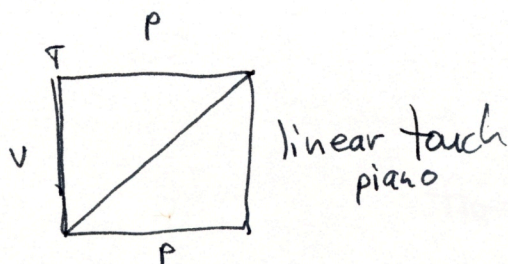 P
V
linear touch
piano
P